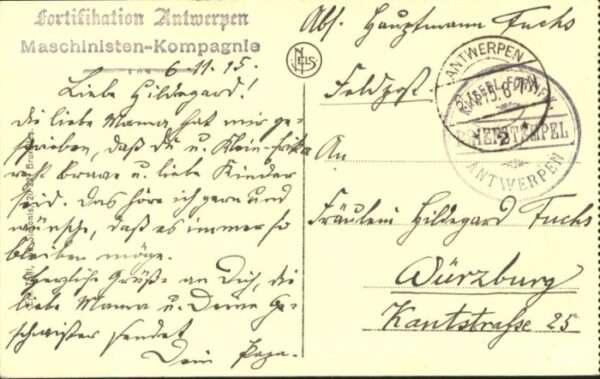 Fortifikation Antwerpen
Maschinisten-Kompagnie
6.11.15.
Liebe Hildegard!
Die liebe Mama hat mir ge-
schrieben, daß du u. Klein-
recht brave u. liebe Kinder
seid. Das höre ich gern und
wünsche, daß es immer so
bleiben möge.
Herzliche Grüße an Dich, die
liebe Mama u. Deine Ge-
schwister sendet
Dein Papa.
NELS
Abs. Hauptmann Fuchs
Feldpost.
ANTWERPEN
2
BRIEFSTEMPEL
ANTWERPEN
An
Fräulein Hildegard Fuchs
Würzburg
Kantstrasse 25